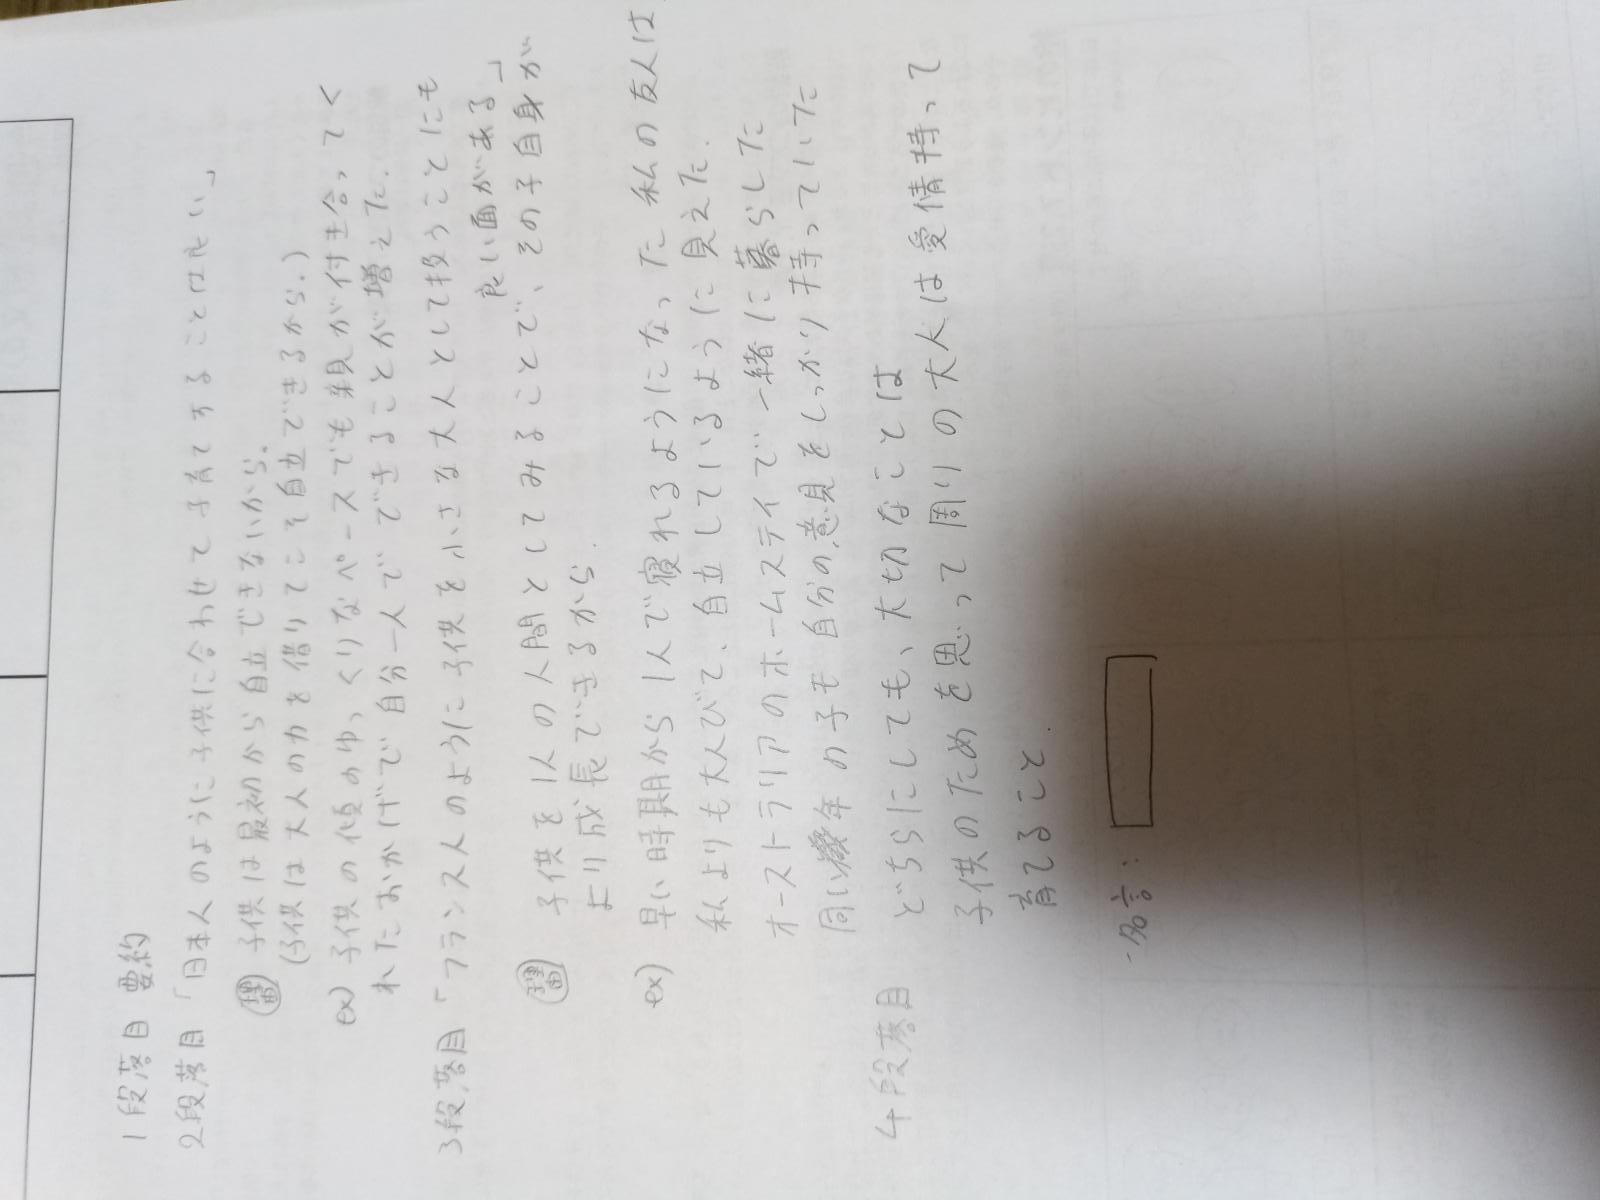 1段落目 要約
2段落目「日本人のように子供に合わせて子育てすることは良い」
理由 子供は最初から自立できないから。
(子供は大人の力を借りてこそ自立できるから。)
ex) 子供の頃のゆっくりなペースでも親が付き合ってく
れたおかげで自分一人でできることが増えた.
3段落目「フランス人のように子供を小さな大人として扱うことにも
良い面がある」
理由 子供を1人の人間としてみることで、その子自身が
より成長できるから.
ex) 早い時期から1人で寝れるようになった私の友人は
私よりも大人びて、自立しているように見えた.
オーストラリアのホームステイで一緒に暮らした
同い年の子も自分の意見をしっかり持っていた
4段落目 どちらにしても、大切なことは
子供のためを思って周りの大人は愛情持って
育てること.
・名言: